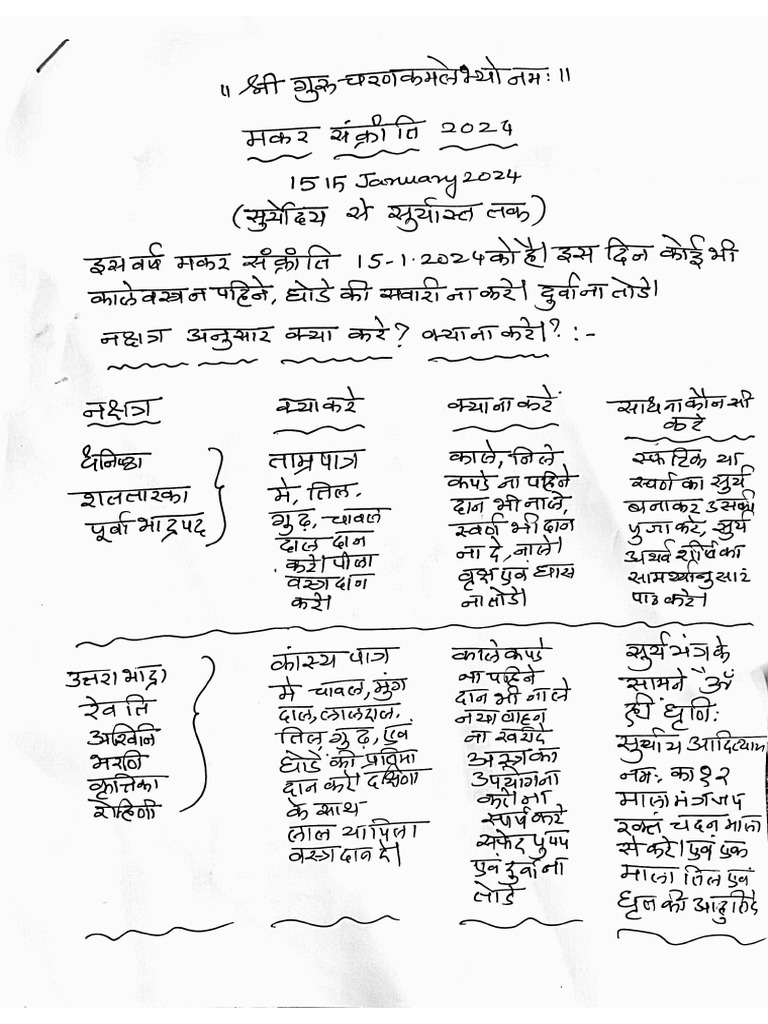 ॥ श्री गुरु चरणकमलेभ्यो नमः ॥
मकर संक्रांति 2024
15 15 January 2024
(सुर्योदय से सुर्यास्त तक)
इस वर्ष मकर संक्रांति 15-1-2024 को है। इस दिन कोई भी
काले वस्त्र न पहिने, घोडे की सवारी ना करे। दुर्वा ना तोडे।
नक्षत्र अनुसार क्या करे? क्या ना करे।? :-
नक्षत्र
धनिष्ठा
शततारका
पूर्वा भाद्रपद
क्या करे
ताम्रपात्र
मे, तिल,
गुढ़, चावल
दाल दान
करे। पीला
वस्त्र दान
करे।
क्या ना करें
काले, निले
कपडे ना पहिने
दान भी नाले,
स्वर्ण भी दान
ना दे, नाले।
वृक्ष एवं घास
ना तोडे।
साधना कौन सी
करे
स्फटिक या
स्वर्ण का सुर्य
बनाकर उसकी
पुजा करे, सुर्य
अथर्व शीर्ष का
सामर्थ्यानुसार
पाठ करे।
उत्तरा भाद्रा
रेवति
अश्विनि
भरणि
कृत्तिका
रोहिणी
कांस्य पात्र
मे चावल, मुंग
दाल, लालदाल,
तिल, गुढ़, एवं
घोडे की प्रतिमा
दान करे। दक्षिणा
के साथ
लाल या पिला
वस्त्र दान दे।
काले कपडे
ना पहिने
दान भी ना ले
नया वाहन
ना खरीदे
अस्त्र का
उपयोग ना
करे ना
स्पर्ष करे
सफेद पुष्प
एवं दुर्वा ना
तोडे
सुर्य यंत्र के
सामने "ॐ
ह्रीं घृणिः
सुर्याय आदित्याय
नमः का १२
माला मंत्र जप
रक्त चंदन माला
से करे। एवं एक
माला तिल एवं
घृत की आहुति दे